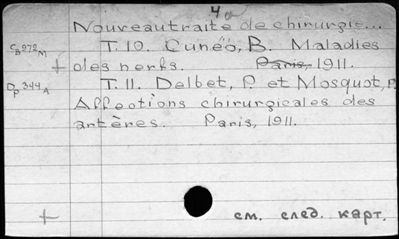 4a
Nouveau traité de chirurgie...
T.10. Cunéo, B. Maladies
des nerfs. Paris, 1911.
T.11. Delbet, P. et Mosquot, P.
Affections chirurgicales des
artères. Paris, 1911.
см. след. карт.